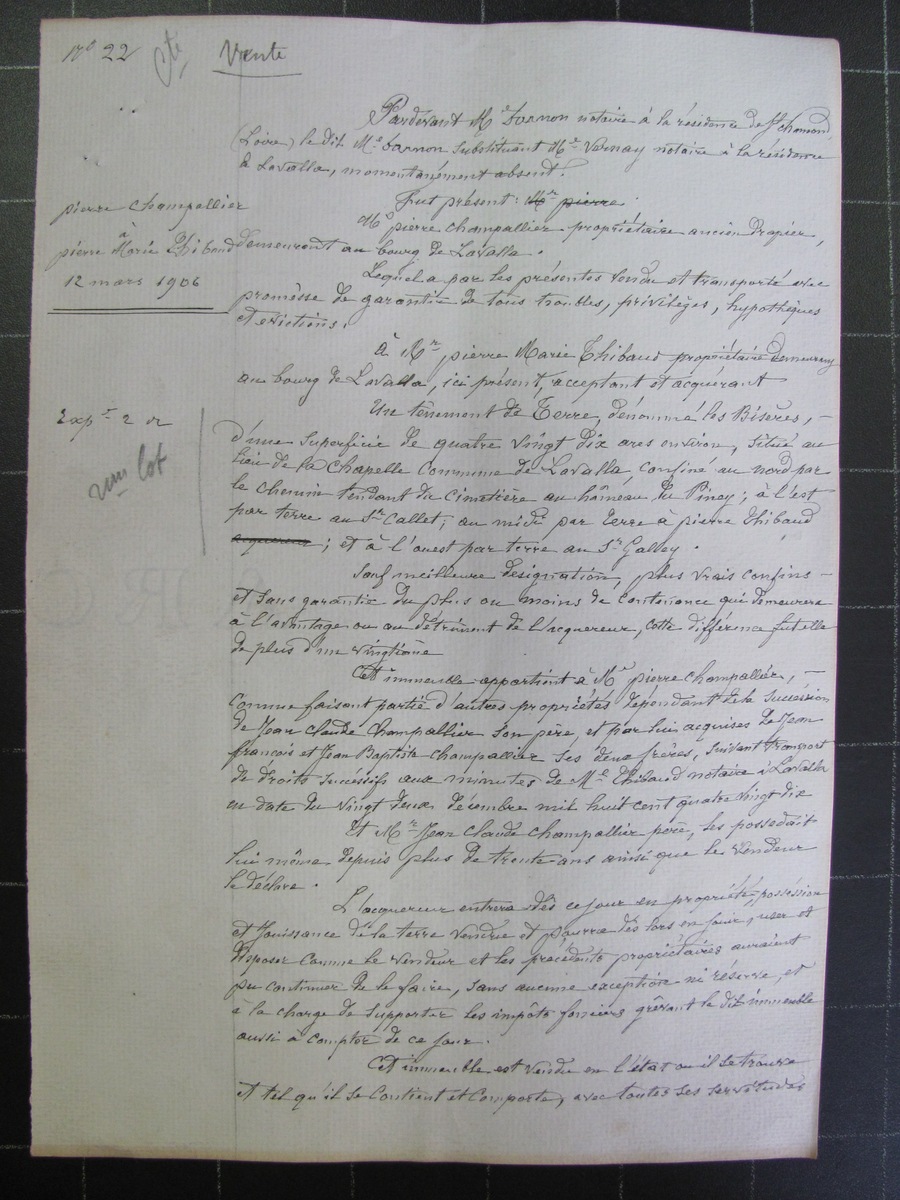 N° 22
Cte
Vente
Pardevant Me notaire à la résidence de St chamond
(Loire) le dit Me substituant Me Vernay notaire à la résidence
de Lavalla, momentanément absent.
Fut présent : Mr pierre
Mr pierre champallier propriétaire ancien drapier,
demeurant au bourg de Lavalla.
pierre champallier
à
pierre Marie Thibaud
12 mars 1906
Lequel a par les présentes vendu et transporté avec
promesse de garantie de tous troubles, privilèges, hypothèques
et evictions.
à Mr pierre Marie Thibaud propriétaire demeurant
au bourg de Lavalla, ici présent, acceptant et acquérant
Expn 2 r
2em lot
Un tènement de Terre, dénommé les Bisères, –
d'une superficie de quatre vingt dix ares environ, situé au
lieu de la chapelle commune de Lavalla, confiné au nord par
le chemin tendant du cimetière au hâmeau du Piney ; à l'est
par terre au Sr Callet ; au midi par terre à pierre Thibaud
acquereur ; et à l'ouest par terre au Sr Galley.
Sauf meilleure désignation, plus vrais confins –
et sans garantie du plus ou moins de contenance qui demeurera
à l'avantage ou au détriment de l'acquereur, cette différence fut elle
de plus d'un vingtième
Cet immeuble appartient à Mr pierre champallier, –
comme faisant partie d'autres propriétés dépendant de la succession
de Jean claude champallier son père, et par lui acquises de Jean
françois et Jean Baptiste champallier ses deux frères, suivant transport
de droits successifs aux minutes de Me Thibaud notaire à Lavalla
en date du vingt deux décembre mil huit cent quatre vingt dix
Et Mr Jean claude champallier père, les possedait
lui même depuis plus de trente ans ainsi que le vendeur
le déclare.
L'acquereur entrera dès ce jour en propriété, possession
et jouissance de la terre vendue et pourra dès lors en jouir, user et
disposer comme le vendeur et les précédents propriétaires auraient
pu continuer de le faire, sans aucune exception ni réserve, et
à la charge de supporter les impôts fonciers grêvant le dit immeuble
aussi à compter de ce jour.
Cet immeuble est vendu en l'état ou il se trouve
et tel qu'il se contient et comporte, avec toutes ses servitudes